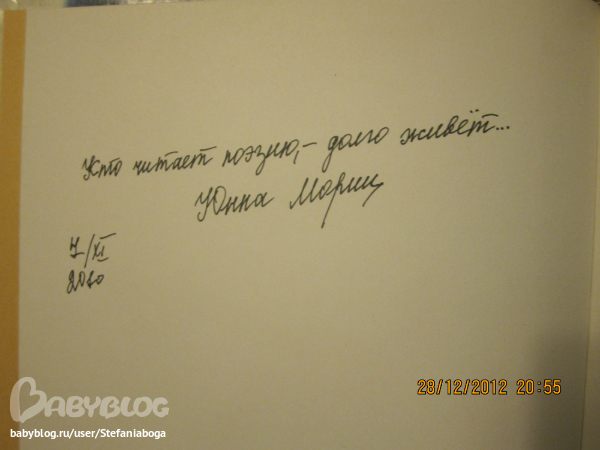 Кто читает поэзию, – долго живёт...
Юнна Мориц
7/XI
2010
28/12/2012 20:55
BABYBLOG
babyblog.ru/user/Stefaniaboga